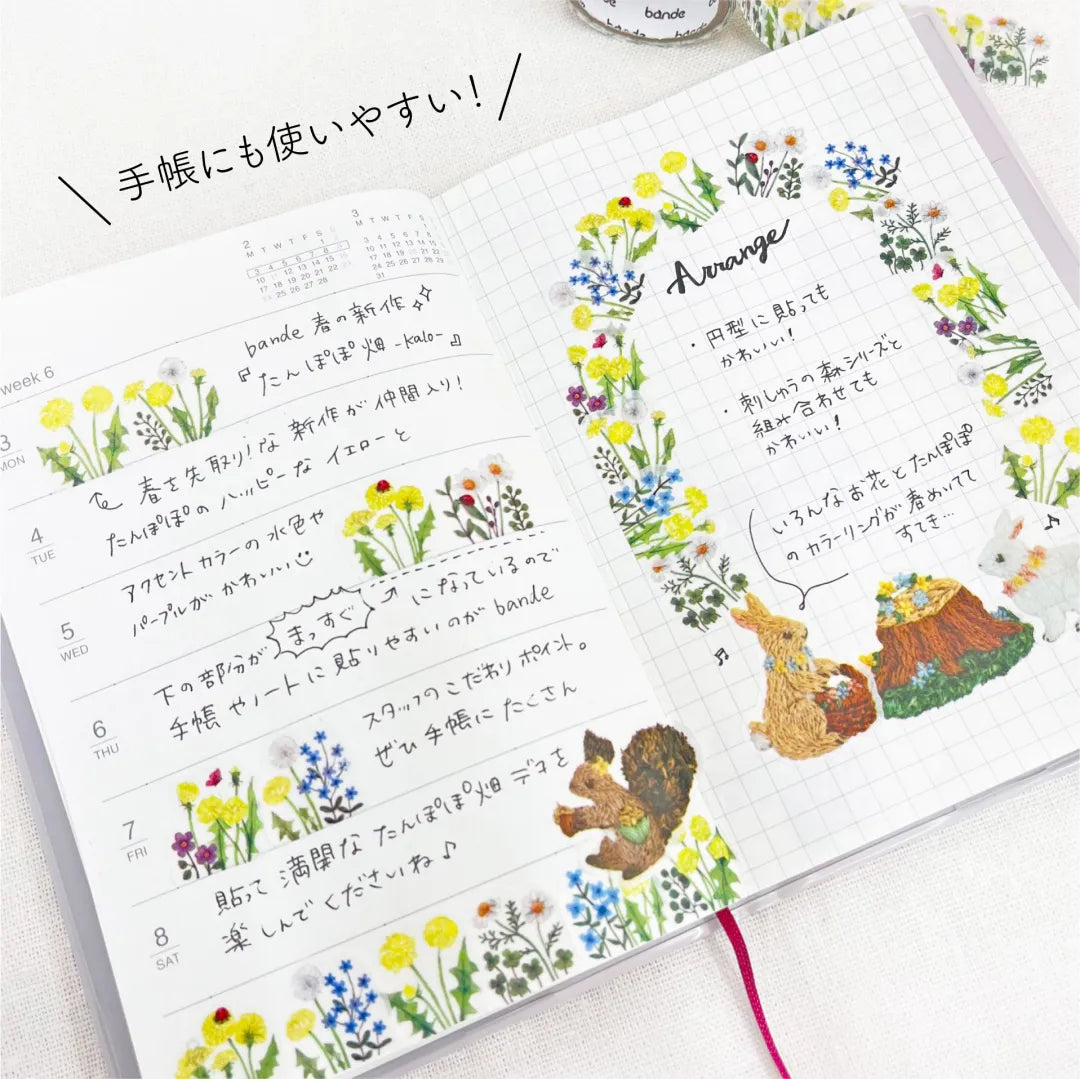 bande
bande
手帳にも使いやすい！
2
M T W T F S S
3 4 5 6 7 8 9
10 11 12 13 14 15 16
17 18 19 20 21 22 23
24 25 26 27 28
3
M T W T F S
10 11 12 13 14 15
17 18 19 20 21 22
24 25 26 27 28 29
31
week 6
bande 春の新作
『たんぽぽ畑 -kalo-』
3
MON
春を先取り！な新作が仲間入り！
たんぽぽのハッピーなイエローと
4
TUE
アクセントカラーの水色や
パープルがかわいい
5
WED
下の部分がまっすぐになっているので
手帳やノートに貼りやすいのがbande
6
THU
スタッフのこだわりポイント。
ぜひ手帳にたくさん
7
FRI
貼って満開なたんぽぽ畑デコを
楽しんでくださいね♪
8
SAT
Arrange
・円型に貼っても
かわいい！
・刺しゅうの森シリーズと
組み合わせても
かわいい！
いろんなお花とたんぽぽ
のカラーリングが春めいてて
すてき…